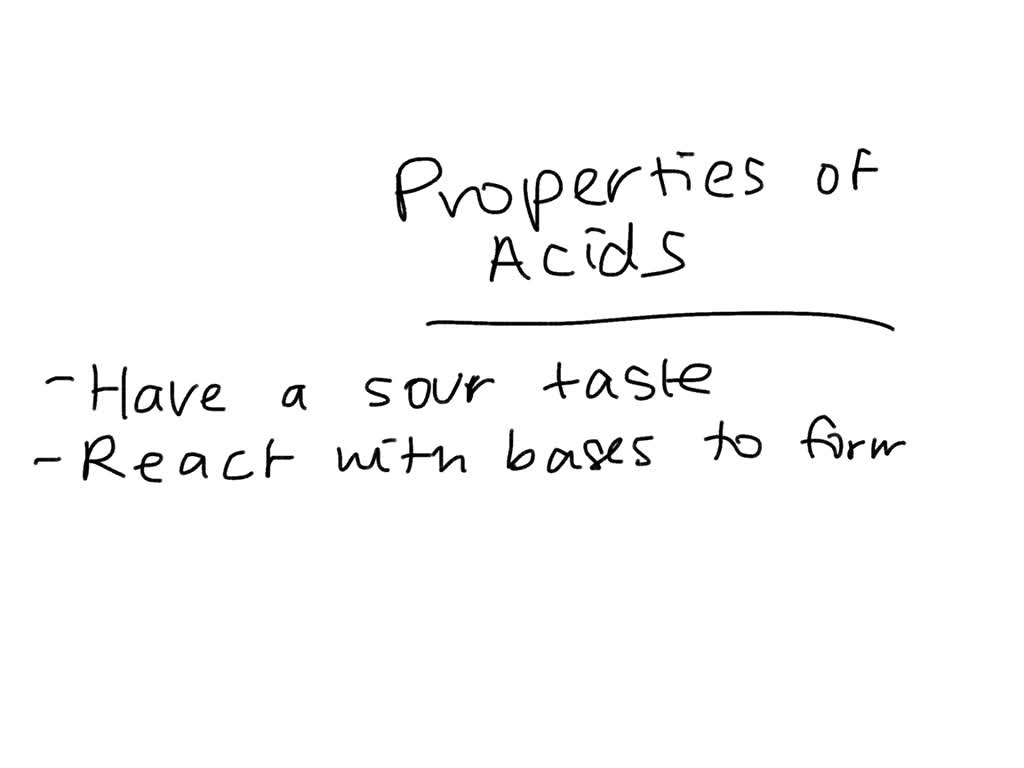 Properties of
Acids
- Have a sour taste
- React with bases to form